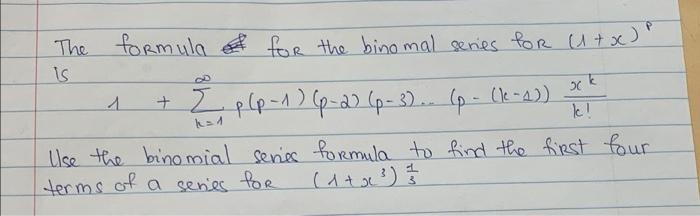 The formula for the binomal series for (1+x)^p
is
1 + ∑_{k=1}^{∞} p(p-1)(p-2)(p-3)... (p-(k-1)) x^k/k!
Use the binomial series formula to find the first four
terms of a series for (1+x³)^{1/3}